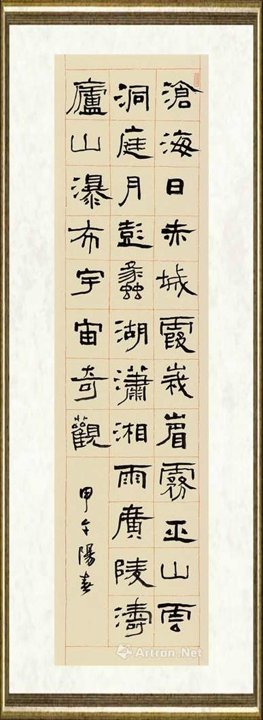 滄海日赤城霞峩眉霧巫山雲
洞庭月彭蠡湖瀟湘雨廣陵濤
廬山瀑布宇宙奇觀
甲午陽春
Artron.Net